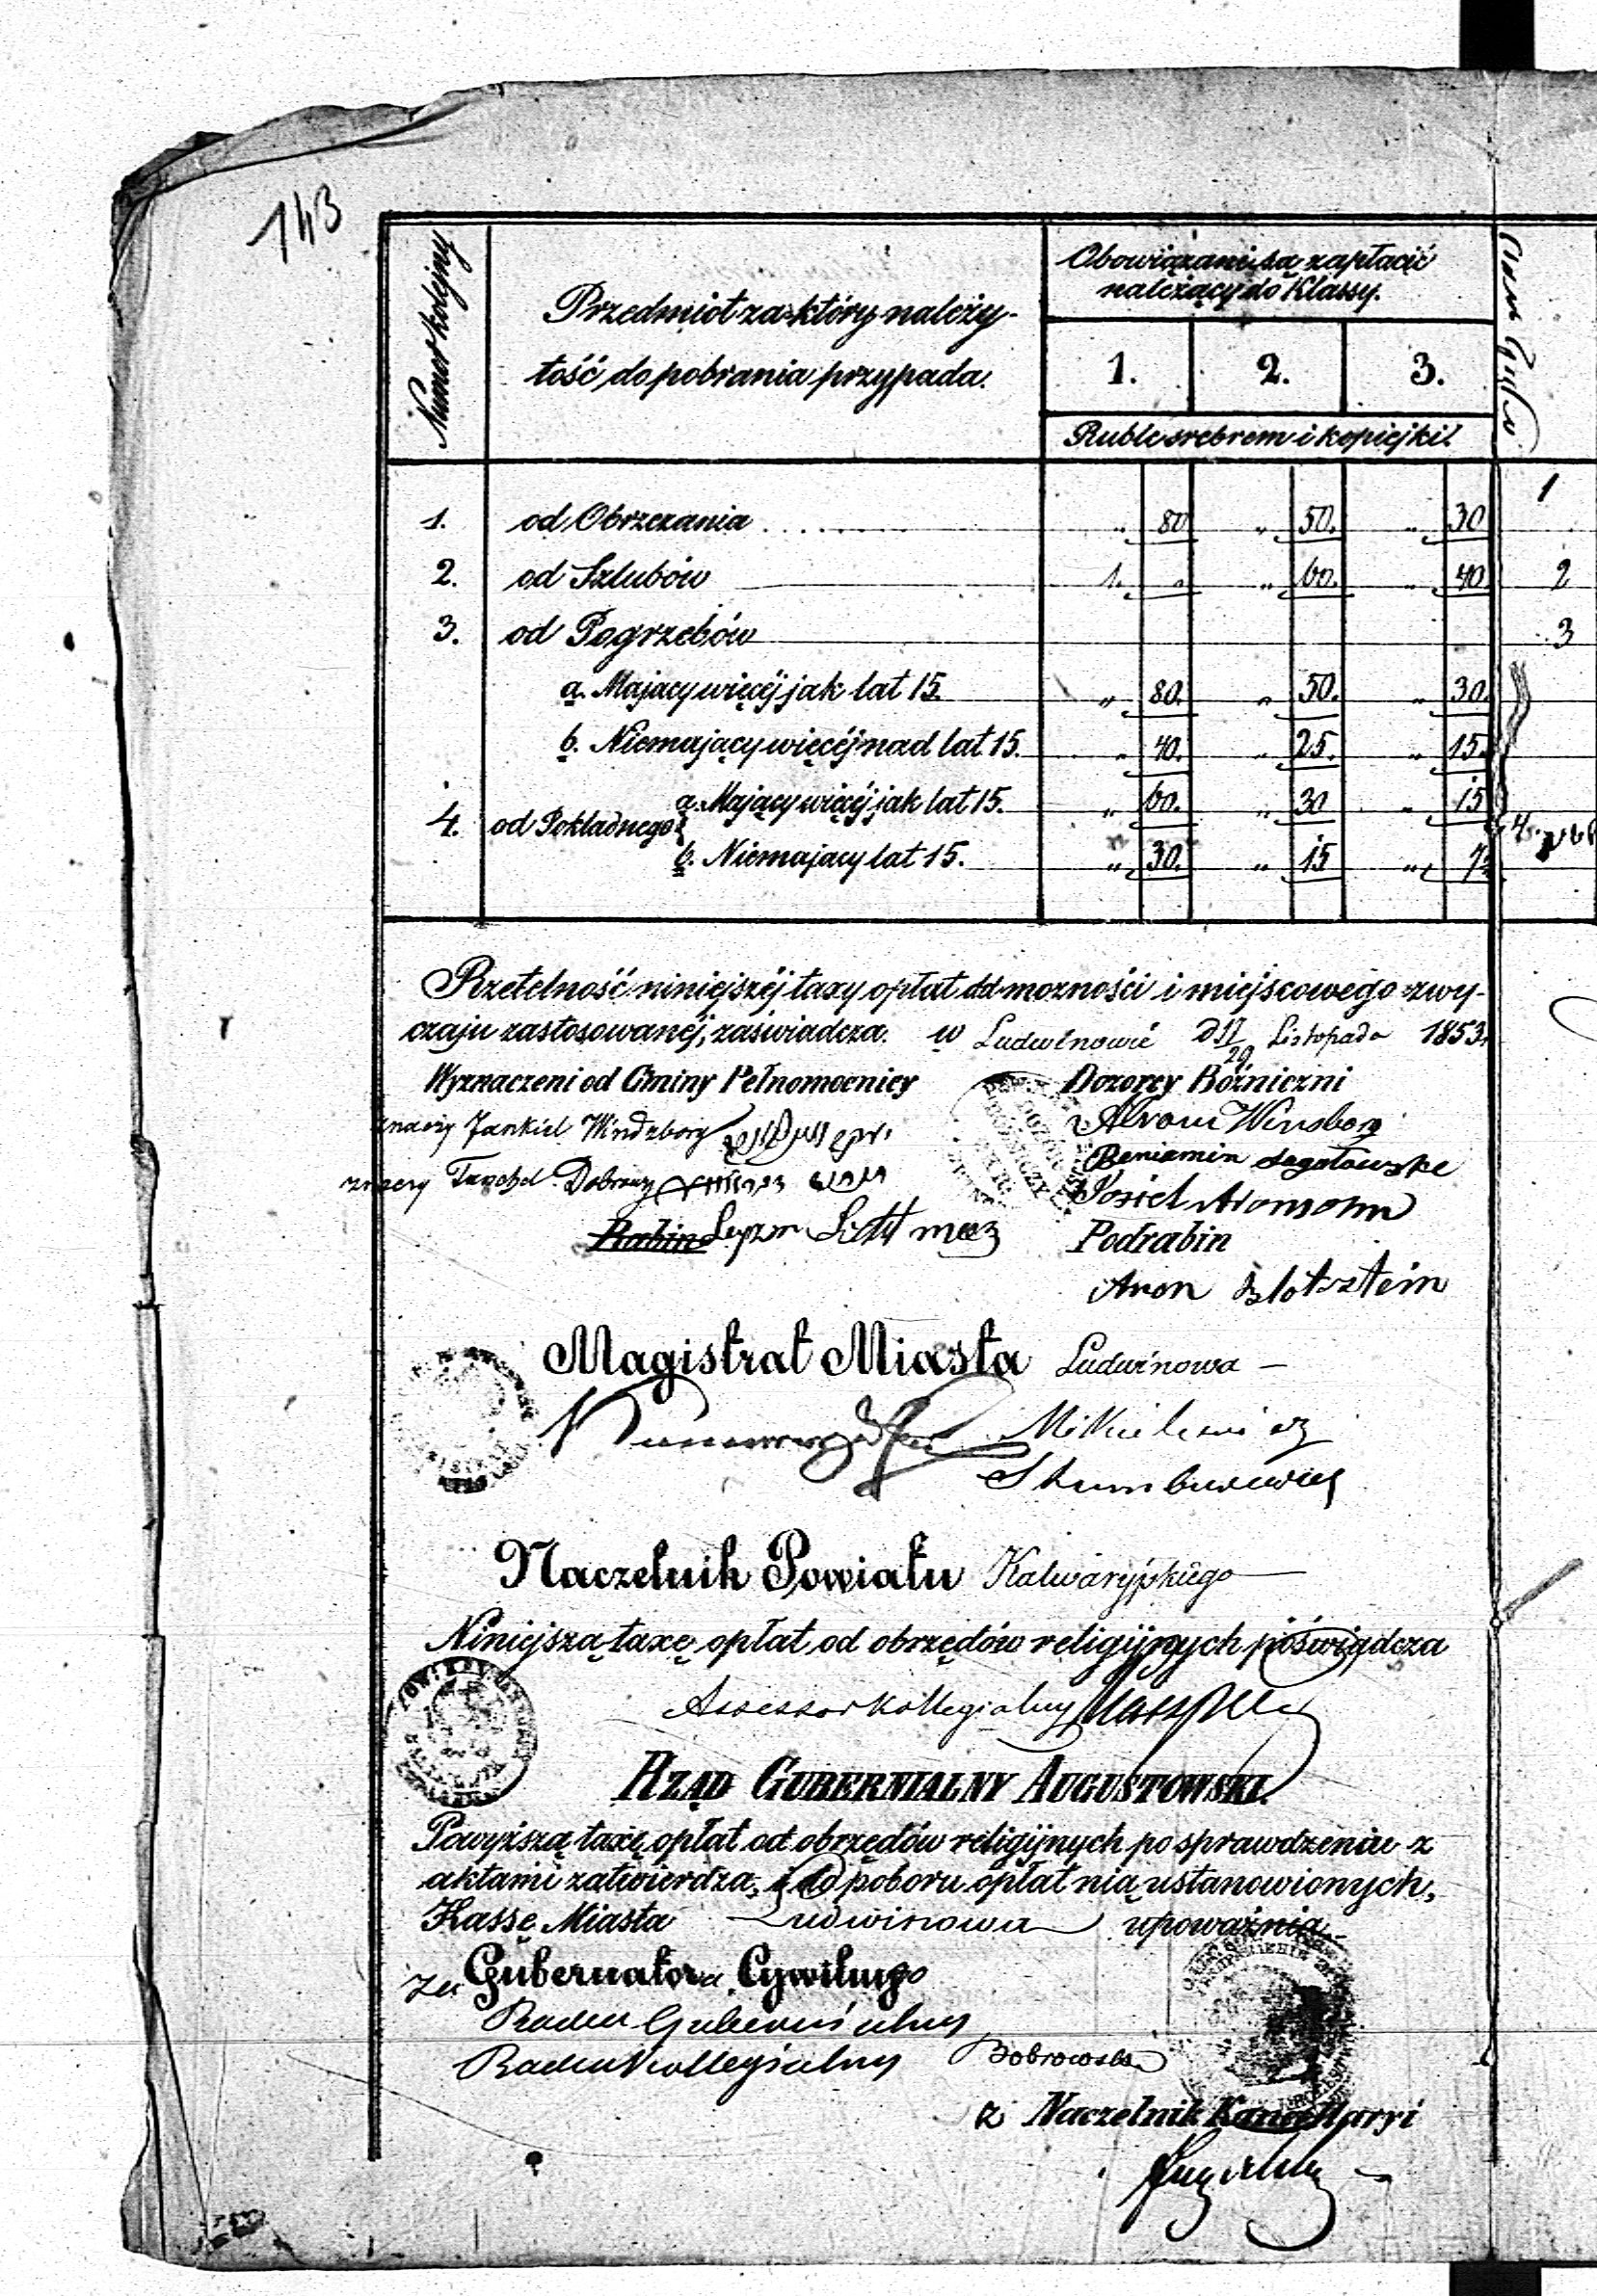 143
Numer kolejny
Przedmiot za który należy-
tość do pobrania przypada.
Obowiązani są zapłacić
należący do Klassy.
1. 2. 3.
Ruble srebrem i kopiejki.
1. od Obrzezania . . . . . . . „ 80 „ 50. „ 30
1
2. od Szlubów 1. „ „ 60. „ 40
2
3. od Pogrzebów
3
a. Mający więcéj jak lat 15. „ 80. „ 50. „ 30.
b. Niemający więcéj nad lat 15. „ 40. „ 25. „ 15.
4. od Pokładnego a. Mający więcéj jak lat 15. „ 60. „ 30 „ 15
b. Niemający lat 15. „ 30. „ 15 „ 7½
Rzetelność niniejszéj taxy opłat do możności i miejscowego zwy-
czaju zastosowanéj, zaświadcza. w Ludwinowie D 17/29 Listopada 1853.
Wyznaczeni od Gminy Pełnomocnicy
Dozorcy Bóźniczni
znaczy Jankiel Windzborg
Abram Winsborg
Beniamin
znaczy
Josiel Aronsohn
Rabin
Podrabin
Aron Blotsztein
Magistrat Miasta Ludwinowa
Naczelnik Powiatu Kalwaryjskiego
Niniejszą taxę opłat od obrzędów religijnych poświadcza
Assessor Kollegialny
RZĄD GUBERNIALNY AUGUSTOWSKI.
Powyższą taxę opłat od obrzędów religijnych po sprawdzeniu z
aktami zatwierdza, i do poboru opłat nią ustanowionych,
Kassę Miasta Ludwinowa upoważnia.
za Gubernatora Cywilnego
Radca Gubernialny
Radca Kollegialny Bobrowski
z Naczelnik Kancellaryi